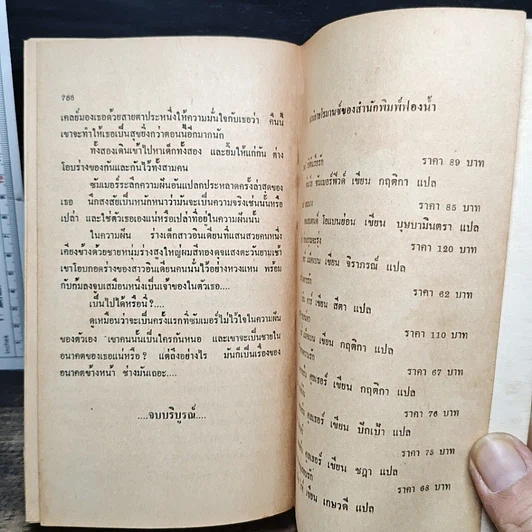 768
เคลย์มองเธอด้วยสายตาประหนึ่งให้ความมั่นใจกับเธอว่า คืนนี้
เขาจะทำให้เธอเป็นสุขยิ่งกว่าตอนนี้อีกมากนัก
ทั้งสองเดินเข้าไปหาเด็กทั้งสอง และยิ้มให้แก่กัน ต่าง
โอบร่างของกันและกันไว้ทั้งสามคน
ซัมเมอร์ระลึกความฝันอันแปลกประหลาดครั้งล่าสุดของ
เธอ นึกสงสัยเป็นหนักหนาว่ามันจะเป็นความจริงเช่นนั้นหรือ
เปล่า และใช่ตัวเธอเองแน่หรือเปล่าที่อยู่ในความฝันนั้น
ในความฝัน ร่างเด็กสาวอินเดียนที่แสนสวยคนหนึ่ง
เคียงข้างด้วยชายหนุ่มร่างสูงใหญ่ผมสีทองดุจแสงตะวันยามเช้า
เขาโอบกอดร่างของสาวอินเดียนคนนั้นไว้อย่างหวงแหน พร้อม
กับก้มลงจูบเสมือนหนึ่งเป็นเจ้าของในตัวเธอ....
เป็นไปได้หรือนี่?....
ดูเหมือนว่าจะเป็นครั้งแรกที่ซัมเมอร์ไม่ไว้ใจในความฝัน
ของตัวเอง เขาคนนั้นเป็นใครกันหนอ และเขาจะเป็นชายใน
อนาคตของเธอแน่หรือ? แต่ถึงอย่างไร มันก็เป็นเรื่องของ
อนาคตข้างหน้า ช่างมันเถอะ....
....จบบริบูรณ์....
ของสำนักพิมพ์ฟองน้ำ
ราคา 89 บาท
เขียน กฤติกา แปล
ราคา 85 บาท
เขียน บุษบามินตรา แปล
ราคา 120 บาท
เขียน จิราภรณ์ แปล
ราคา 62 บาท
เขียน สีตา แปล
ราคา 110 บาท
เขียน กฤติกา แปล
ราคา 67 บาท
เขียน กฤติกา แปล
ราคา 76 บาท
เขียน ปีกเป้า แปล
ราคา 75 บาท
เขียน ชฎา แปล
ราคา 68 บาท
เขียน เกษวดี แปล